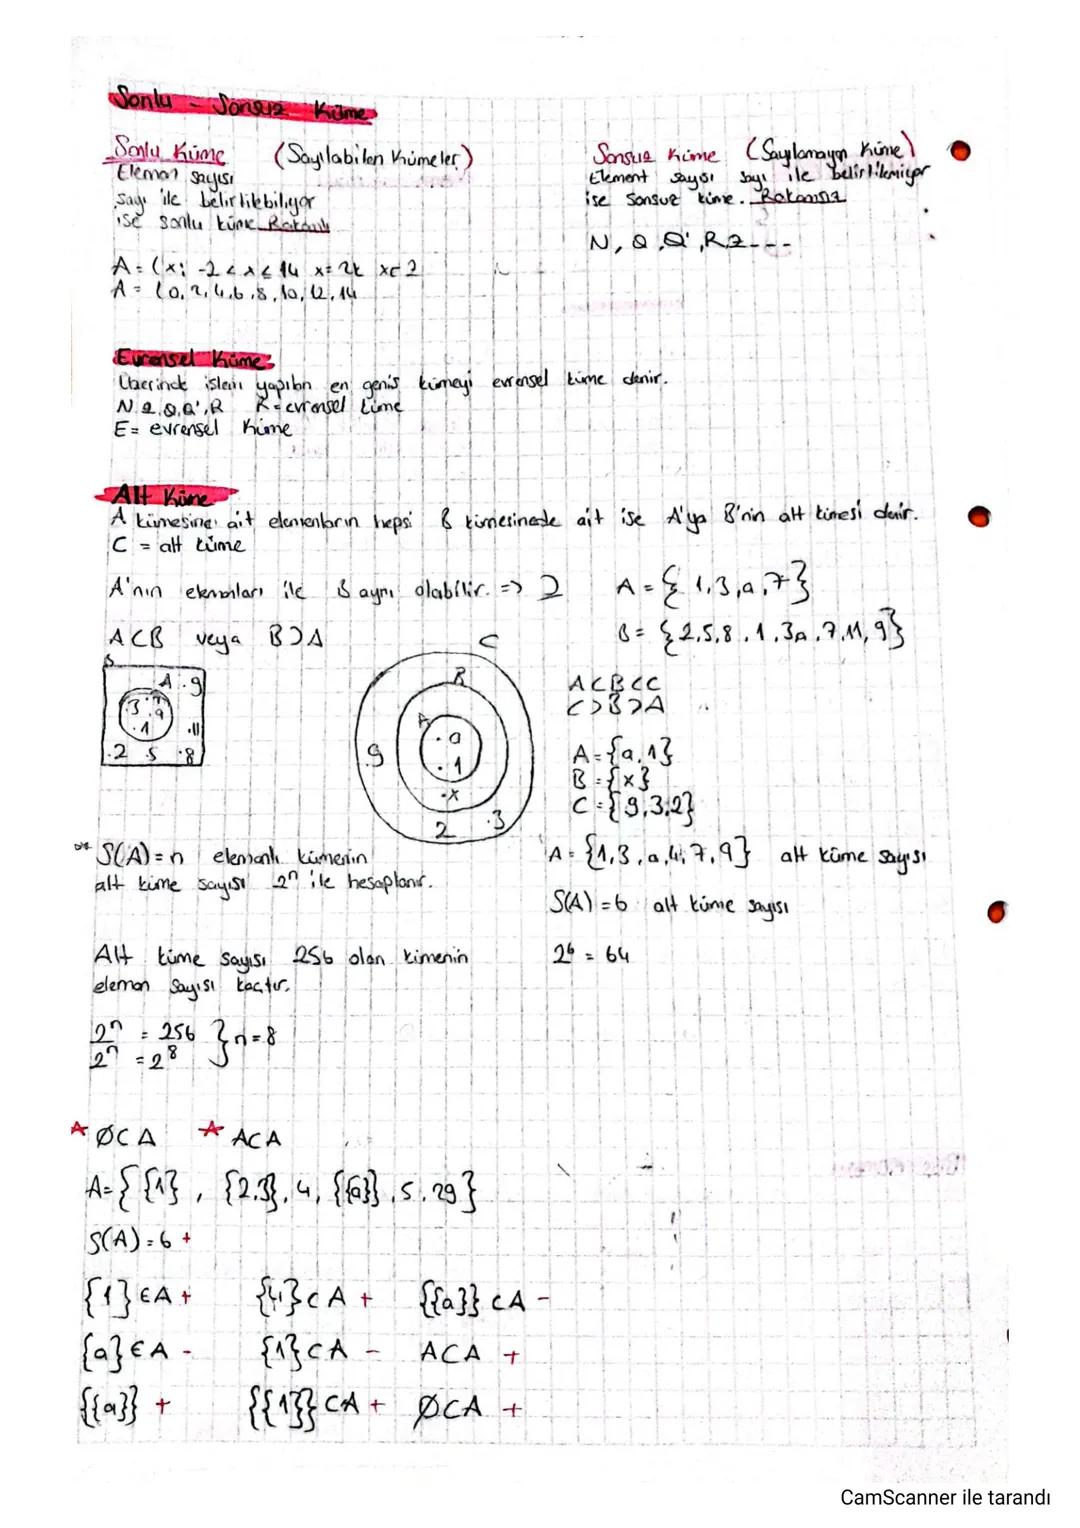 Sonlu - Sonsuz Küme
Sonlu Küme (Sayılabilen Kümeler)
Eleman sayısı
sayı ile belirtilebiliyor
ise sonlu küme
Sonsuz Küme (Sayılamayan Küme)
Element sayısı sayı ile belirtilemiyor
ise sonsuz küme.
N, Q, Q', R, Z---
A = (x: -2 < x ≤ 14 x = 2k x∈Z
A = {0, 2, 4, 6, 8, 10, 12, 14
Evrensel Küme
Üzerinde işlem yapılan en geniş kümeyi evrensel küme denir.
N, Z, Q, Q', R R = evrensel küme
E = evrensel küme
Alt Küme
A kümesine ait elemenların hepsi B kümesinede ait ise A'ya B'nin alt kümesi denir.
⊂ = alt küme
A'nın elemanları ile B aynı olabilir. =>
A⊂B veya B⊃A
A = {1, 3, a, 7}
B = {2, 5, 8, 1, 3, a, 7, 11, 9}
B
A .9
3 .7
.a
.1 .11
.2 5 .8
C
B
A
.a
.1
.9
.x
2 .3
A⊂B⊂C
C⊃B⊃A
A = {a, 1}
B = {x}
C = {9, 3, 2}
S(A) = n elemanlı kümenin
alt küme sayısı 2ⁿ ile hesaplanır.
A = {1, 3, a, 4, 7, 9} alt küme sayısı
S(A) = 6 alt küme sayısı
2⁶ = 64
Alt küme sayısı 256 olan kümenin
eleman sayısı kaçtır.
2ⁿ = 256 } n = 8
2ⁿ = 2⁸
∅⊂A A⊂A
A = {{1}, {2,3}, 4, {{a}}, 5, 29}
S(A) = 6 +
{1} ∈ A + {4} ⊂ A + {{a}} ⊂ A -
{a} ∈ A - {1} ⊂ A - A⊂A +
{{a}} + {{1}} ⊂ A + ∅⊂A +
CamScanner ile tarandı